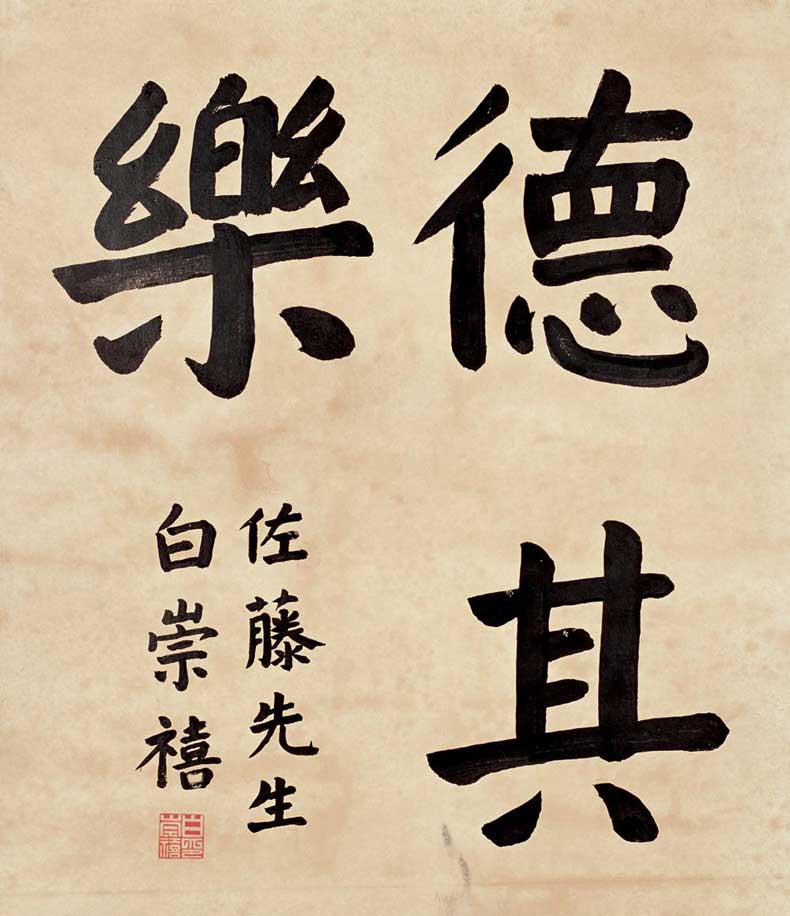 德其
樂
佐藤先生
白崇禧
白印
崇禧